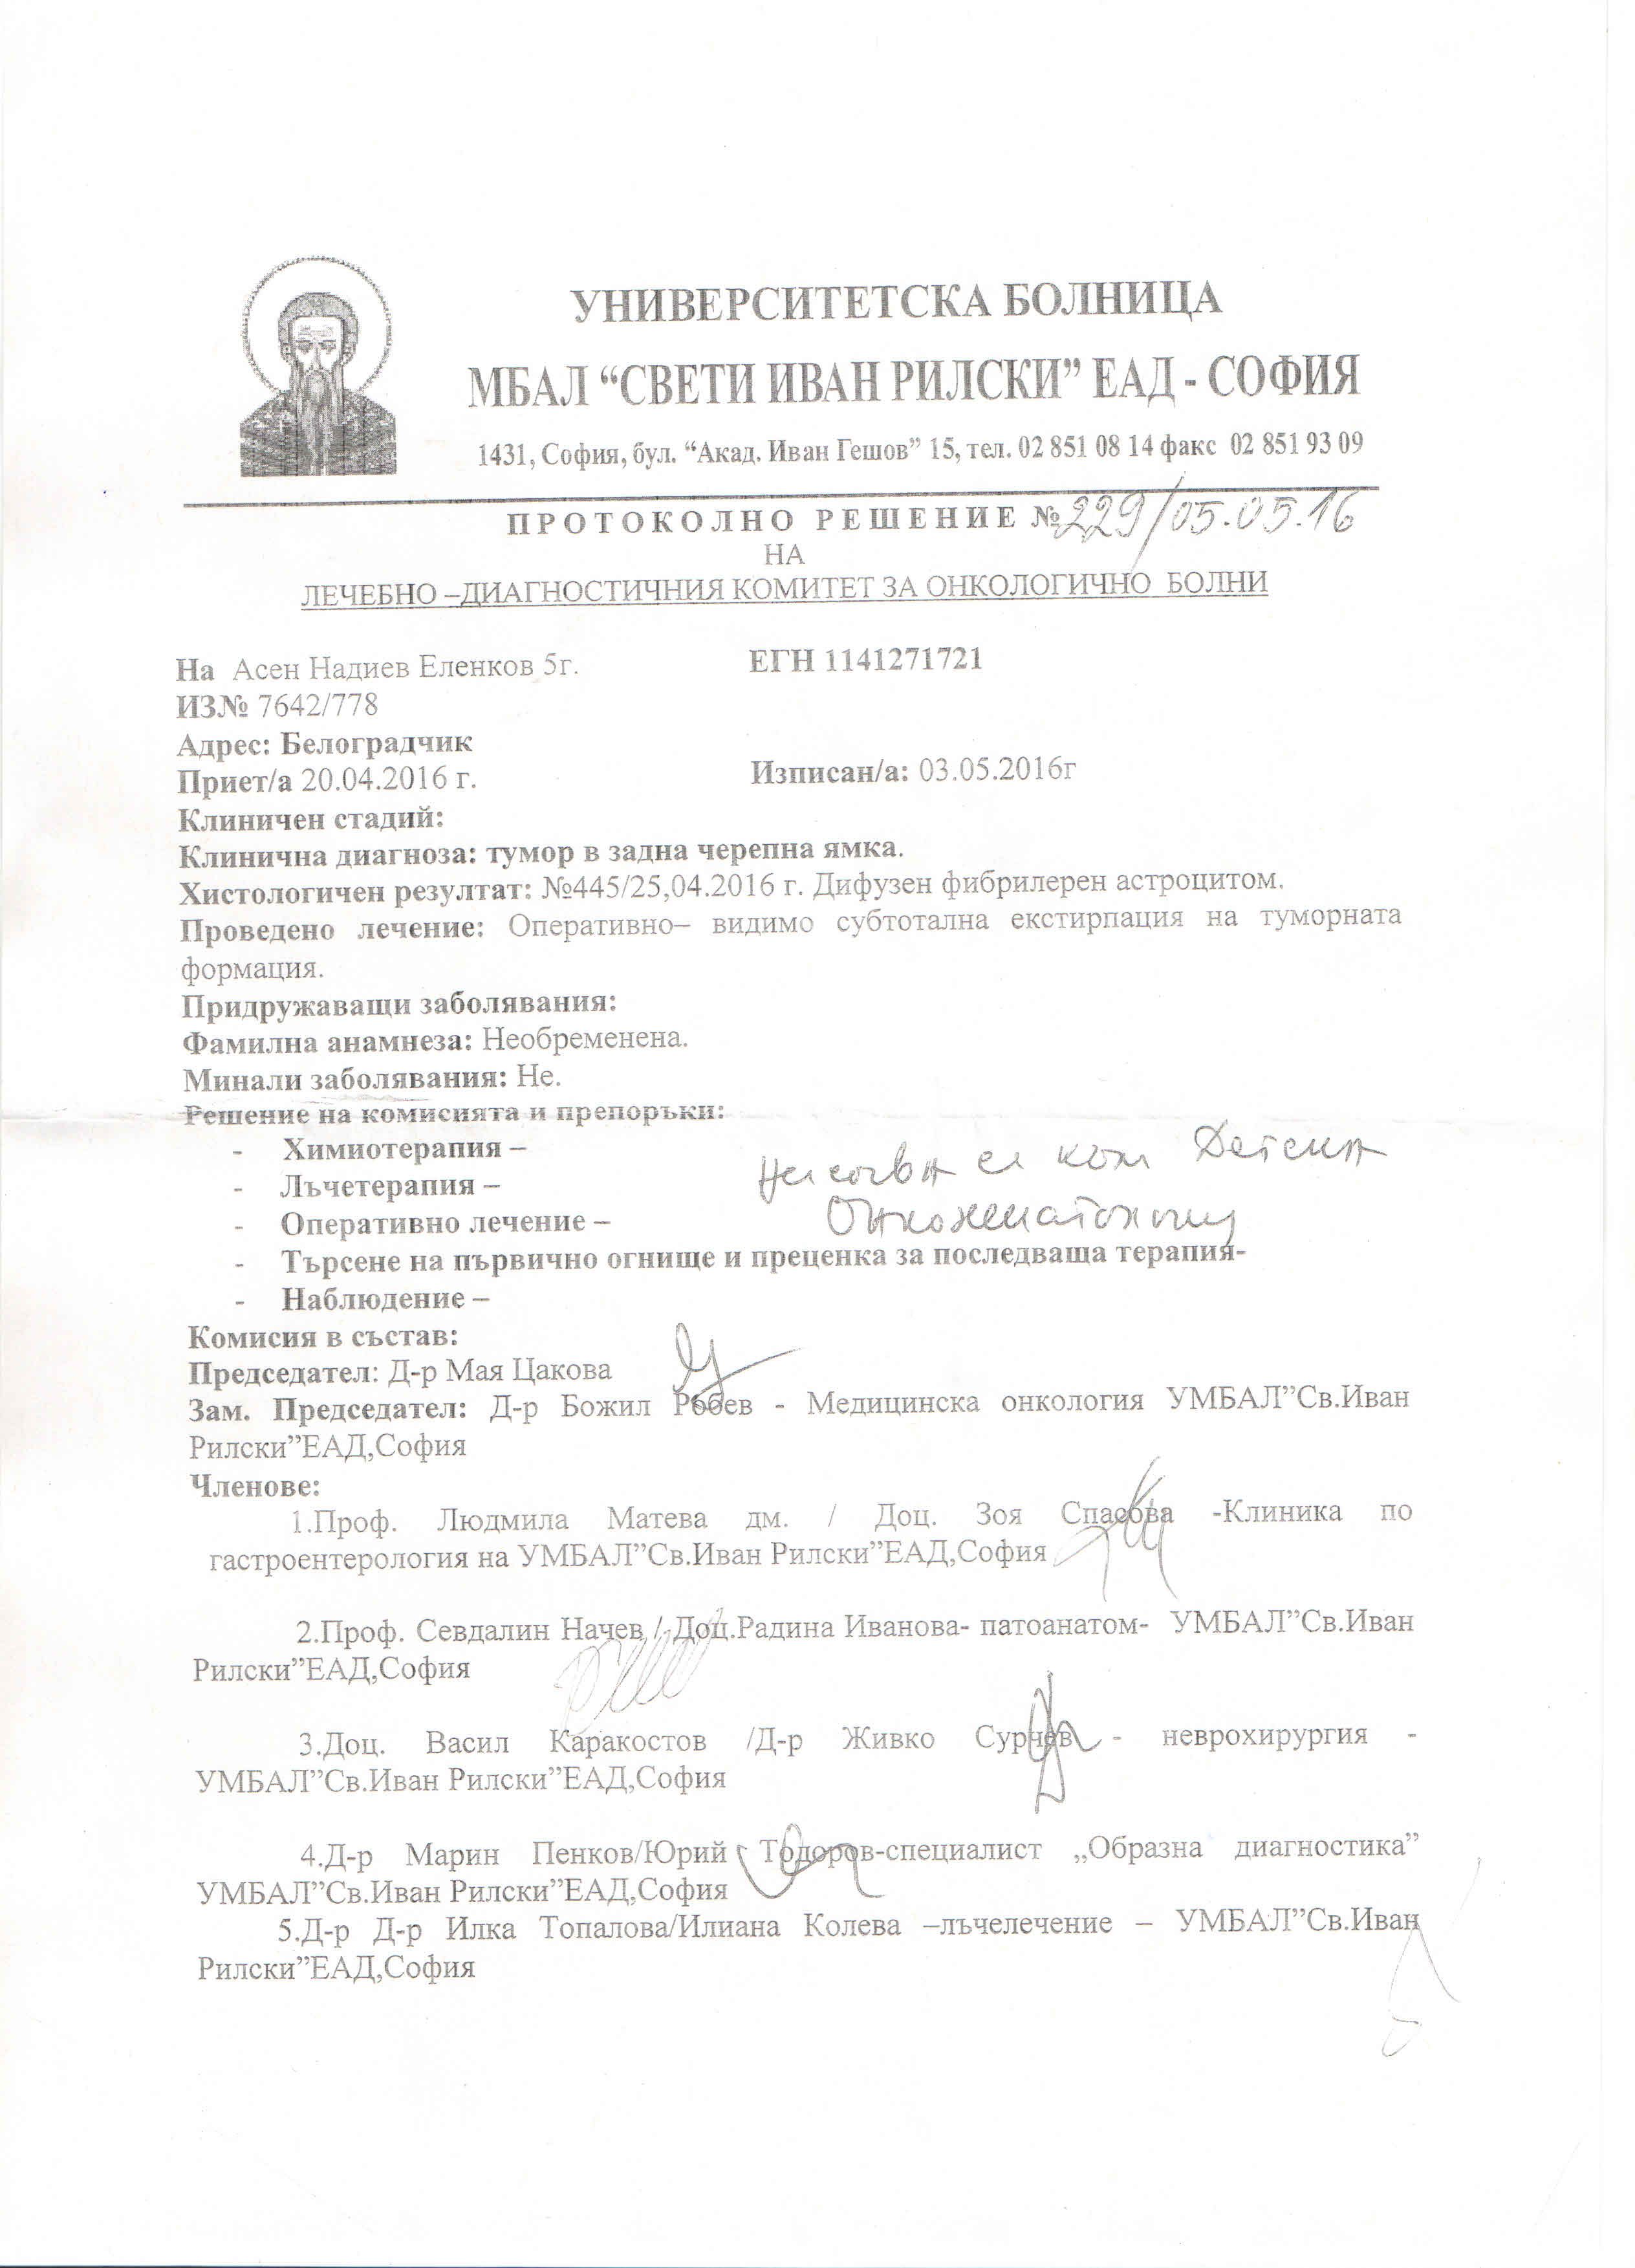 УНИВЕРСИТЕТСКА БОЛНИЦА
МБАЛ “СВЕТИ ИВАН РИЛСКИ” ЕАД - СОФИЯ
1431, София, бул. “Акад. Иван Гешов” 15, тел. 02 851 08 14 факс 02 851 93 09
ПРОТОКОЛНО РЕШЕНИЕ № 229/05.05.16
НА
ЛЕЧЕБНО –ДИАГНОСТИЧНИЯ КОМИТЕТ ЗА ОНКОЛОГИЧНО БОЛНИ
На Асен Надиев Еленков 5г. ЕГН 1141271721
ИЗ№ 7642/778
Адрес: Белоградчик
Приет/а 20.04.2016 г. Изписан/а: 03.05.2016г
Клиничен стадий:
Клинична диагноза: тумор в задна черепна ямка.
Хистологичен резултат: №445/25,04.2016 г. Дифузен фибрилерен астроцитом.
Проведено лечение: Оперативно– видимо субтотална екстирпация на туморната
формация.
Придружаващи заболявания:
Фамилна анамнеза: Необременена.
Минали заболявания: Не.
Решение на комисията и препоръки:
- Химиотерапия –
Насочва се към Детска
- Лъчетерапия –
- Оперативно лечение –
Онкохематология
- Търсене на първично огнище и преценка за последваща терапия-
- Наблюдение –
Комисия в състав:
Председател: Д-р Мая Цакова
Зам. Председател: Д-р Божил Робев - Медицинска онкология УМБАЛ”Св.Иван
Рилски”ЕАД,София
Членове:
1.Проф. Людмила Матева дм. / Доц. Зоя Спасова -Клиника по
гастроентерология на УМБАЛ”Св.Иван Рилски”ЕАД,София
2.Проф. Севдалин Начев / Доц.Радина Иванова- патоанатом- УМБАЛ”Св.Иван
Рилски”ЕАД,София
3.Доц. Васил Каракостов /Д-р Живко Сурчев - неврохирургия -
УМБАЛ”Св.Иван Рилски”ЕАД,София
4.Д-р Марин Пенков/Юрий Тодоров-специалист „Образна диагностика”
УМБАЛ”Св.Иван Рилски”ЕАД,София
5.Д-р Д-р Илка Топалова/Илиана Колева –лъчелечение – УМБАЛ”Св.Иван
Рилски”ЕАД,София